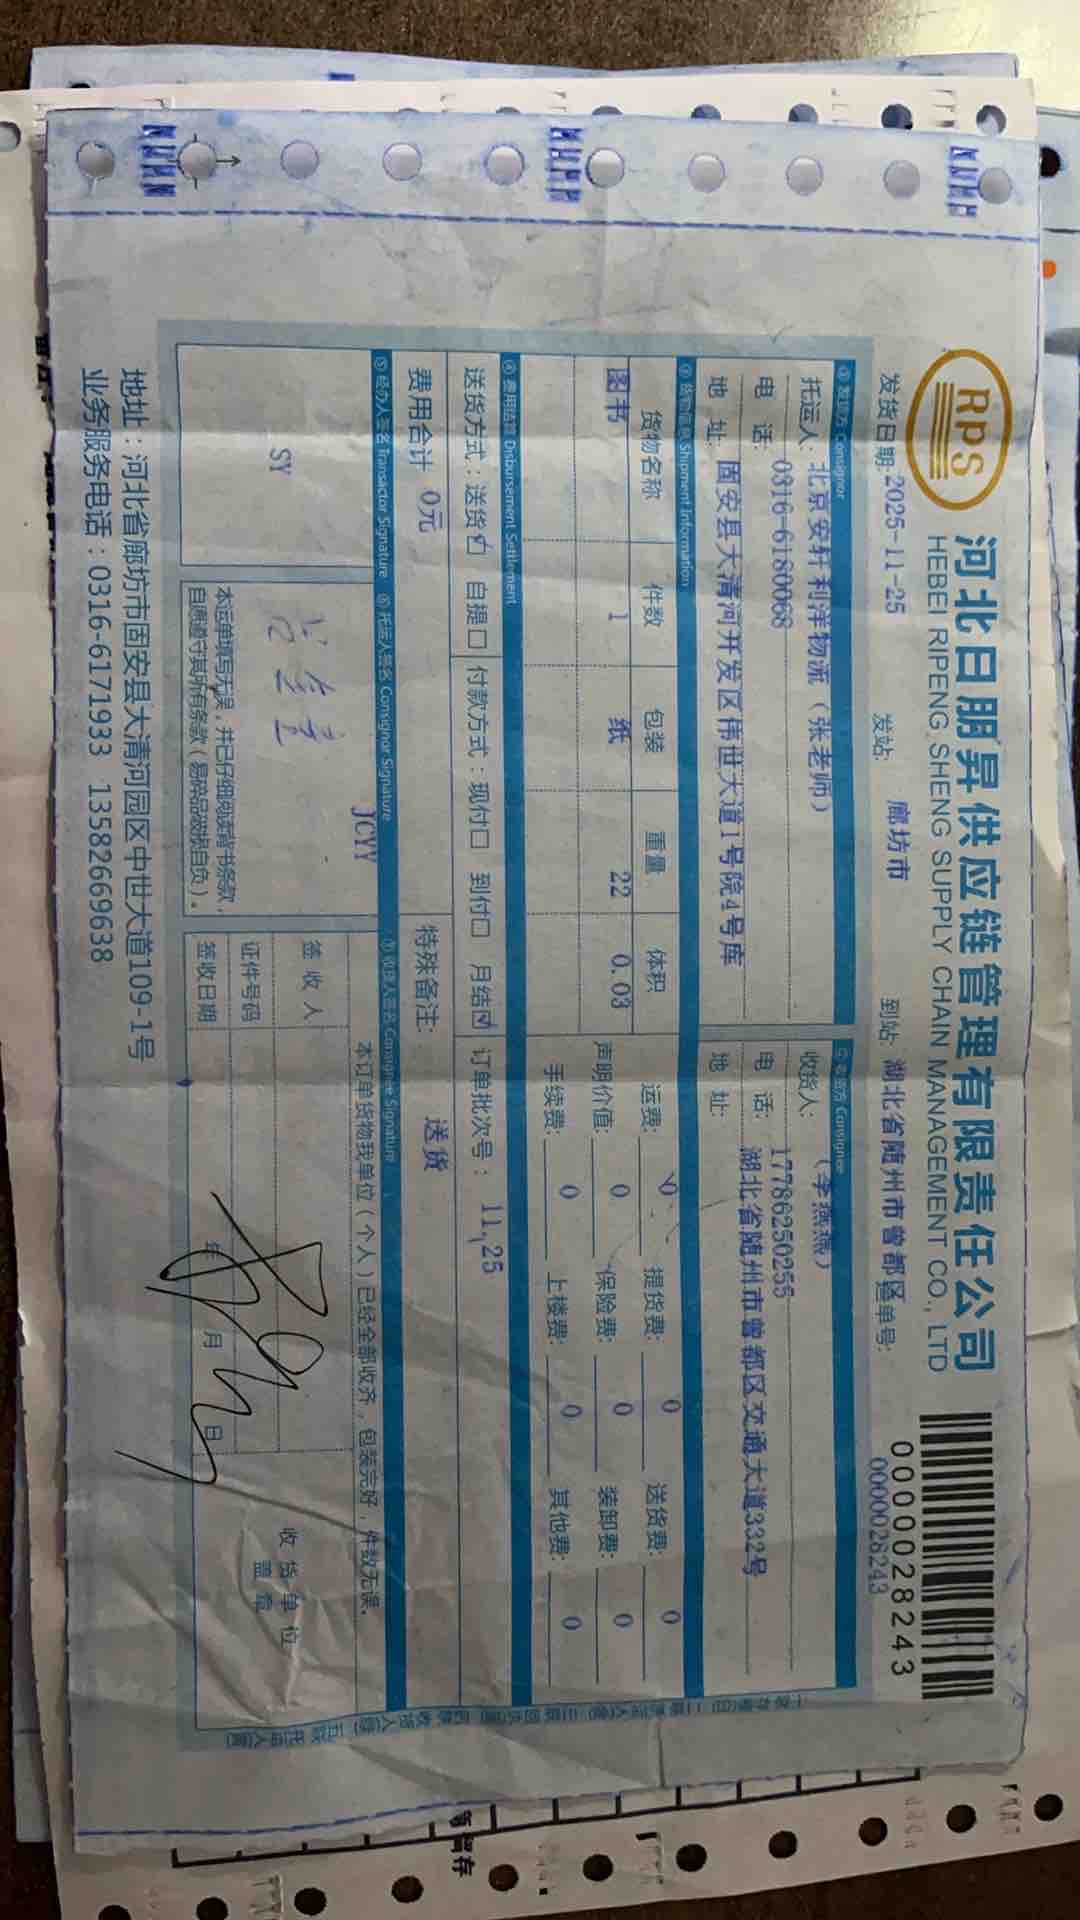 RPS
河北日朋昇供应链管理有限责任公司
HEBEI RIPENG SHENG SUPPLY CHAIN MANAGEMENT CO., LTD
0000028243
0000028243
发货日期: 2025-11-25 发站: 廊坊市 到站: 湖北省随州市曾都区 运单号:
① 发货方 Consignor
托运人: 北京安轩利洋物流（张老师）
电 话: 0316-6180068
地 址: 固安县大清河开发区伟世大道1号院4号库
② 收货方 Consignee
收货人: （李燕燕）
电 话: 17786250255
地 址: 湖北省随州市曾都区交通大道332号
③ 货物信息 Shipment Information
货物名称 件数 包装 重量 体积
图书 1 纸 22 0.03
运费: 0 提货费: 0 送货费: 0
声明价值: 0 保险费: 0 装卸费: 0
手续费: 0 上楼费: 0 其他费: 0
④ 费用结算 Disbursement Settlement
送货方式：送货☑ 自提□ 付款方式：现付□ 到付□ 月结☑ 订单批次号： 11,25
费用合计 0元 特殊备注: 送货
⑤ 经办人签名 Transactor Signature
SY
⑥ 托运人签名 Consignor Signature
JCYY
本运单填写无误，并已仔细阅读背书条款，
自愿遵守其所有条款（易碎品破损自负）。
⑦ 收货人签名 Consignee Signature
本订单货物我单位（个人）已经全部收齐，包装完好，件数无误。
签 收 人
证件号码
签收日期 年 月 日
收 货 单 位
盖 章
地址：河北省廊坊市固安县大清河园区中世大道109-1号
业务服务电话：0316-6171933 13582669638